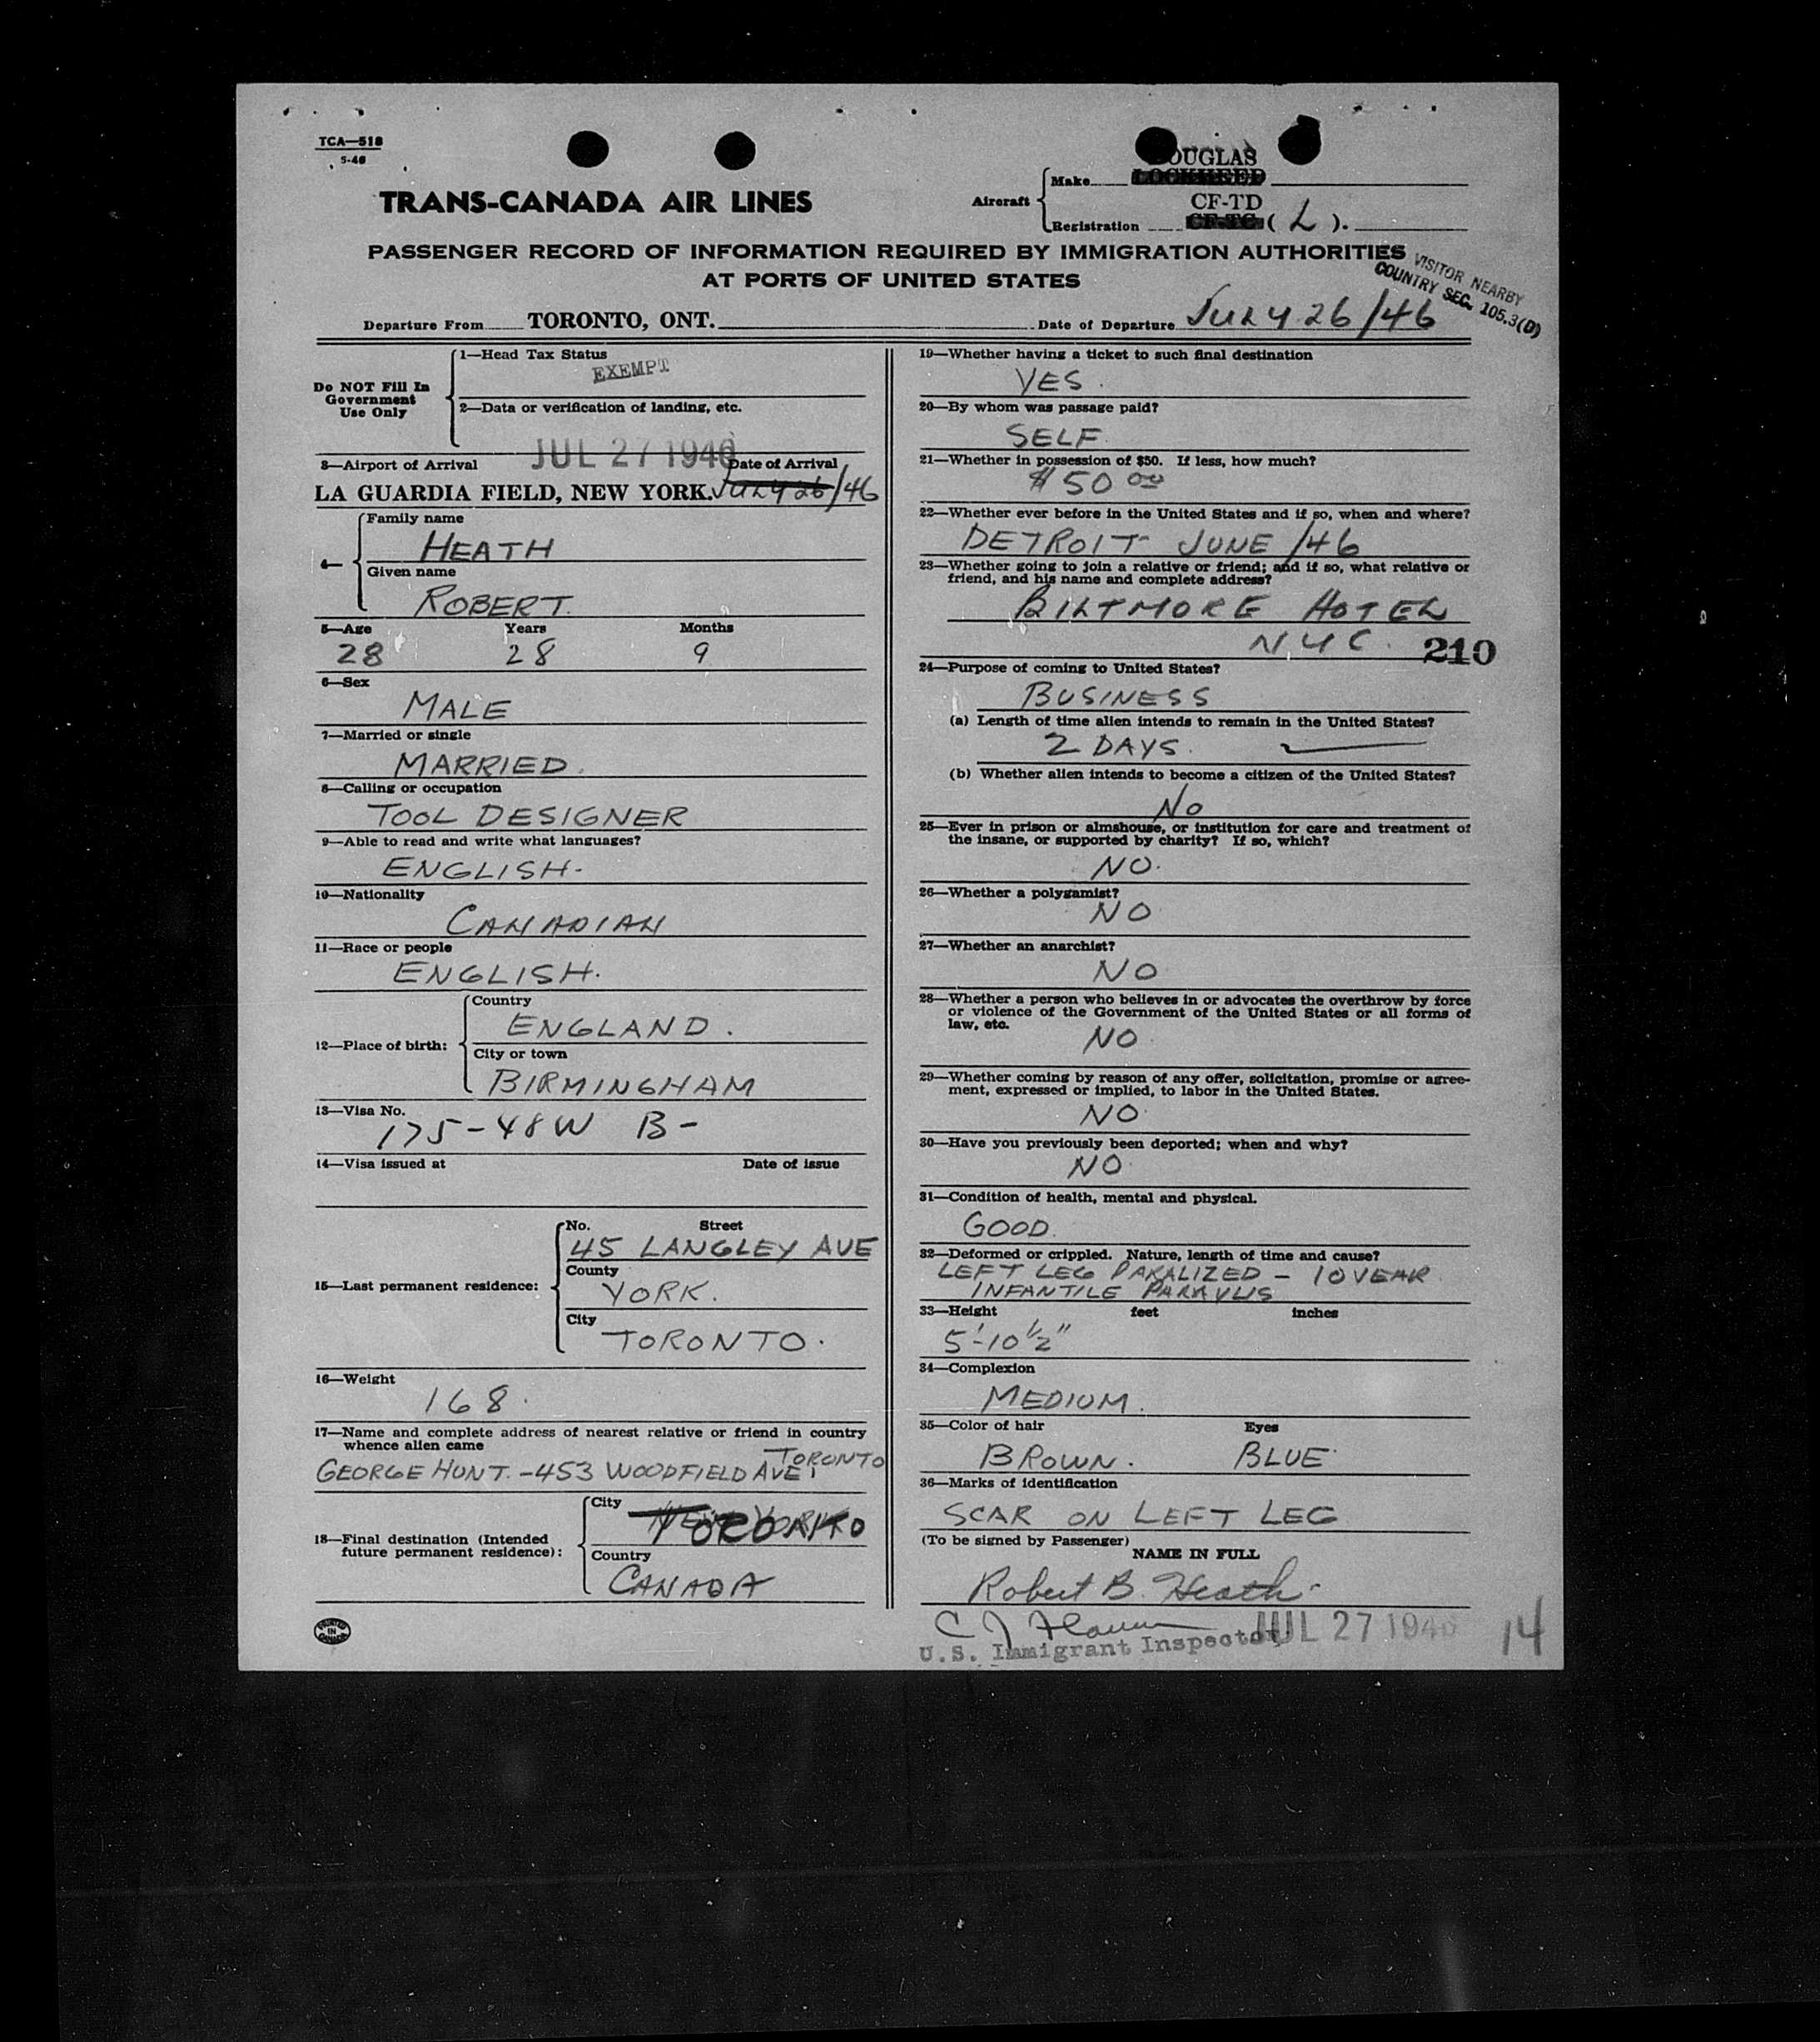 TCA—518
5-46
TRANS-CANADA AIR LINES
Aircraft
Make DOUGLAS
LOCKHEED
Registration CF-TD
CF-TC ( L ).
PASSENGER RECORD OF INFORMATION REQUIRED BY IMMIGRATION AUTHORITIES
AT PORTS OF UNITED STATES
VISITOR NEARBY
COUNTRY SEC. 105.3(D)
Departure From TORONTO, ONT. Date of Departure JULY 26/46
Do NOT Fill In
Government
Use Only
1—Head Tax Status
EXEMPT
2—Data or verification of landing, etc.
JUL 27 1946
3—Airport of Arrival Date of Arrival
LA GUARDIA FIELD, NEW YORK. JULY 26/46
4—
Family name
HEATH
Given name
ROBERT.
5—Age Years Months
28 28 9
6—Sex
MALE
7—Married or single
MARRIED.
8—Calling or occupation
TOOL DESIGNER
9—Able to read and write what languages?
ENGLISH-
10—Nationality
CANADIAN
11—Race or people
ENGLISH.
12—Place of birth:
Country
ENGLAND.
City or town
BIRMINGHAM
13—Visa No.
175-48W B-
14—Visa issued at Date of issue
15—Last permanent residence:
No. Street
45 LANGLEY AVE
County
YORK.
City
TORONTO.
16—Weight
168.
17—Name and complete address of nearest relative or friend in country
whence alien came
GEORGE HUNT.-453 WOODFIELD AVE, TORONTO
18—Final destination (Intended
future permanent residence):
City
NEW YORK
TORONTO
Country
CANADA
PRINTED
IN
CANADA
19—Whether having a ticket to such final destination
YES.
20—By whom was passage paid?
SELF.
21—Whether in possession of $50. If less, how much?
$50 00
22—Whether ever before in the United States and if so, when and where?
DETROIT JUNE/46
23—Whether going to join a relative or friend; and if so, what relative or
friend, and his name and complete address?
BILTMORE HOTEL
NYC. 210
24—Purpose of coming to United States?
BUSINESS
(a) Length of time alien intends to remain in the United States?
2 DAYS.
(b) Whether alien intends to become a citizen of the United States?
No
25—Ever in prison or almshouse, or institution for care and treatment of
the insane, or supported by charity? If so, which?
NO.
26—Whether a polygamist?
NO
27—Whether an anarchist?
NO
28—Whether a person who believes in or advocates the overthrow by force
or violence of the Government of the United States or all forms of
law, etc.
NO
29—Whether coming by reason of any offer, solicitation, promise or agree-
ment, expressed or implied, to labor in the United States.
NO
30—Have you previously been deported; when and why?
NO
31—Condition of health, mental and physical.
GOOD.
32—Deformed or crippled. Nature, length of time and cause?
LEFT LEG PARALIZED - 10 YEAR
INFANTILE
33—Height feet inches
5'-10½"
34—Complexion
MEDIUM.
35—Color of hair Eyes
BROWN. BLUE
36—Marks of identification
SCAR ON LEFT LEG
(To be signed by Passenger)
NAME IN FULL
Robert B. Heath
C J
U.S. Immigrant Inspector
JUL 27 1946 14